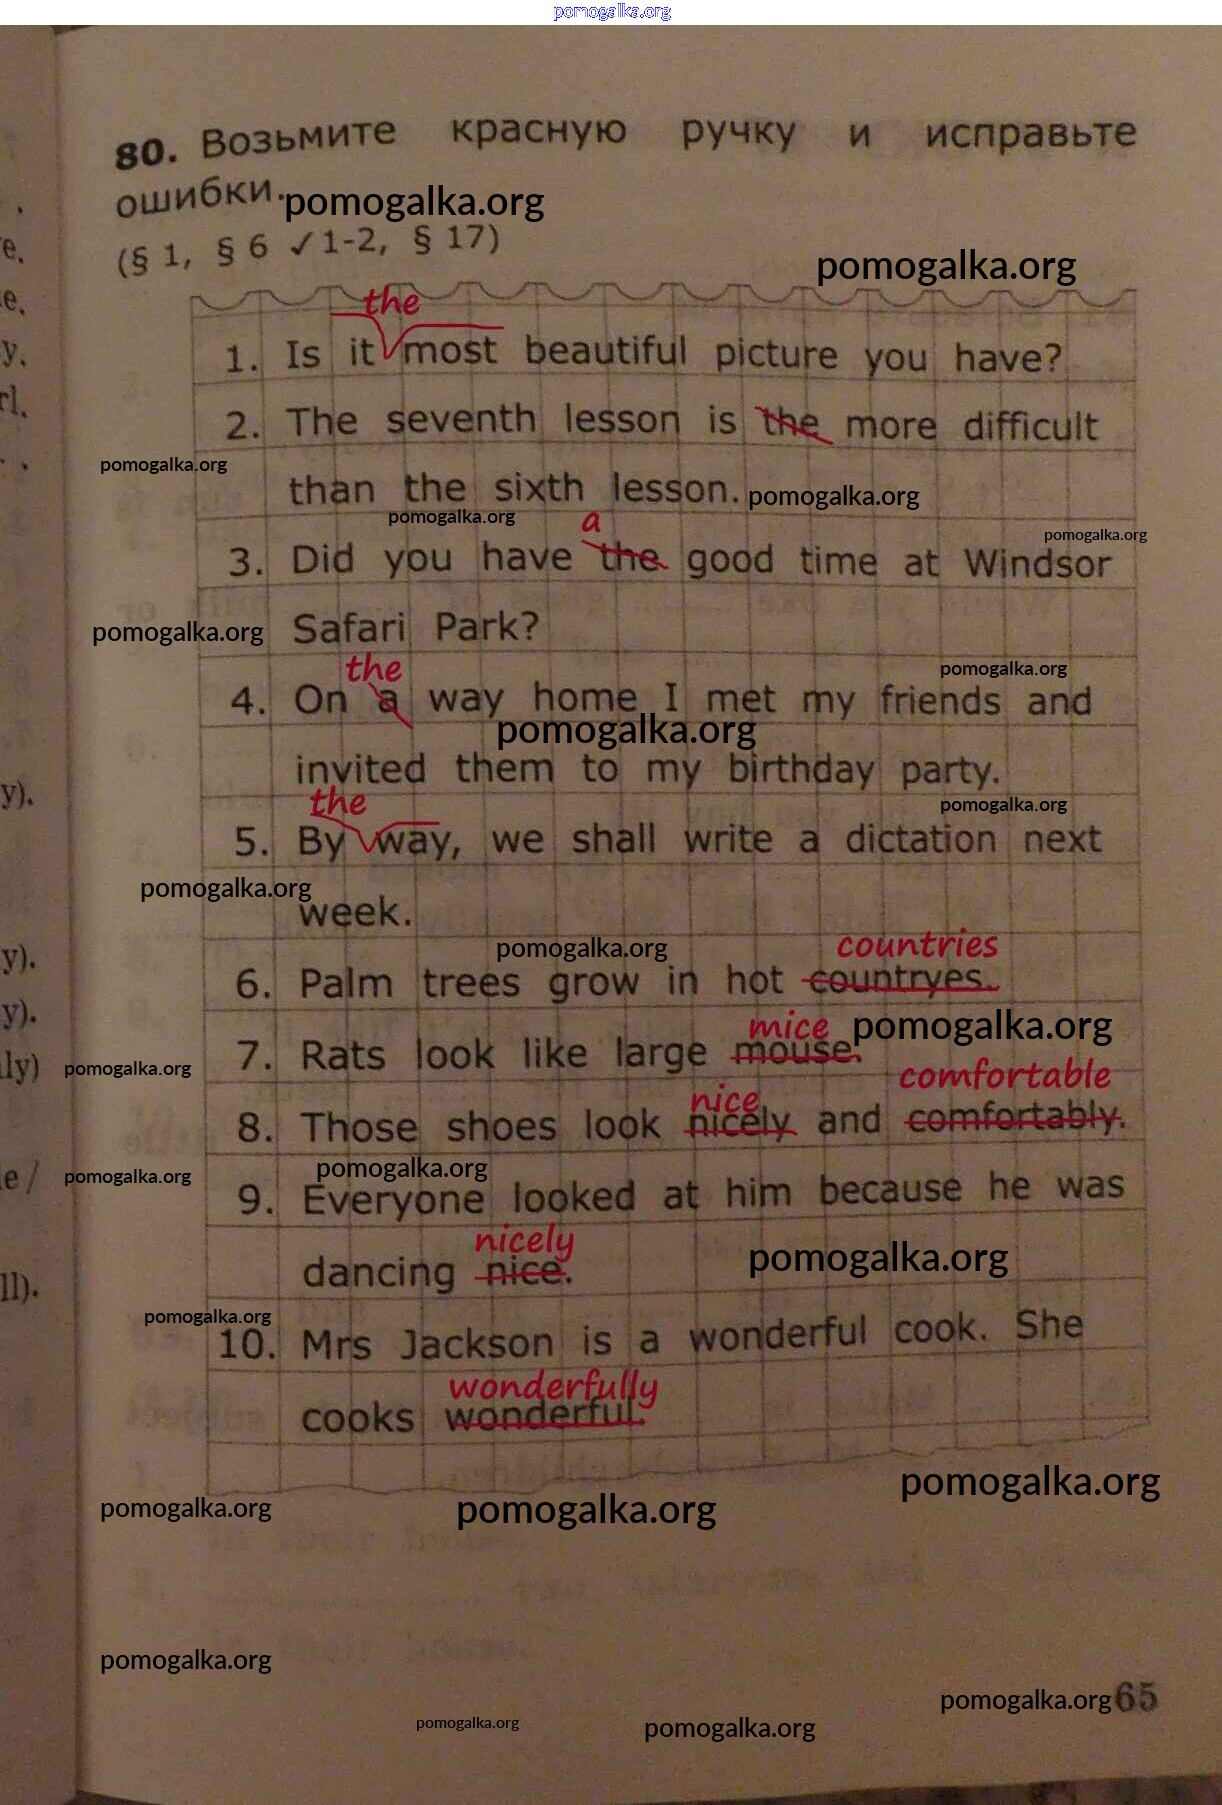 pomogalka.org
80. Возьмите красную ручку и исправьте
ошибки. pomogalka.org
(§ 1, § 6 ✓1-2, § 17)
pomogalka.org
the
1. Is it most beautiful picture you have?
2. The seventh lesson is the more difficult
pomogalka.org
than the sixth lesson. pomogalka.org
pomogalka.org
a
pomogalka.org
3. Did you have the good time at Windsor
pomogalka.org
Safari Park?
the
pomogalka.org
4. On a way home I met my friends and
pomogalka.org
invited them to my birthday party.
the
pomogalka.org
5. By way, we shall write a dictation next
pomogalka.org
week.
pomogalka.org
countries
6. Palm trees grow in hot countryes.
mice
pomogalka.org
7. Rats look like large mouse.
pomogalka.org
nice
comfortable
8. Those shoes look nicely and comfortably.
pomogalka.org
pomogalka.org
9. Everyone looked at him because he was
nicely
dancing nice.
pomogalka.org
pomogalka.org
10. Mrs Jackson is a wonderful cook. She
wonderfully
cooks wonderful.
pomogalka.org
pomogalka.org
pomogalka.org
pomogalka.org
pomogalka.org 65
pomogalka.org
pomogalka.org
e.
e.
y.
rl.
y).
y).
y).
lly)
e /
ll).